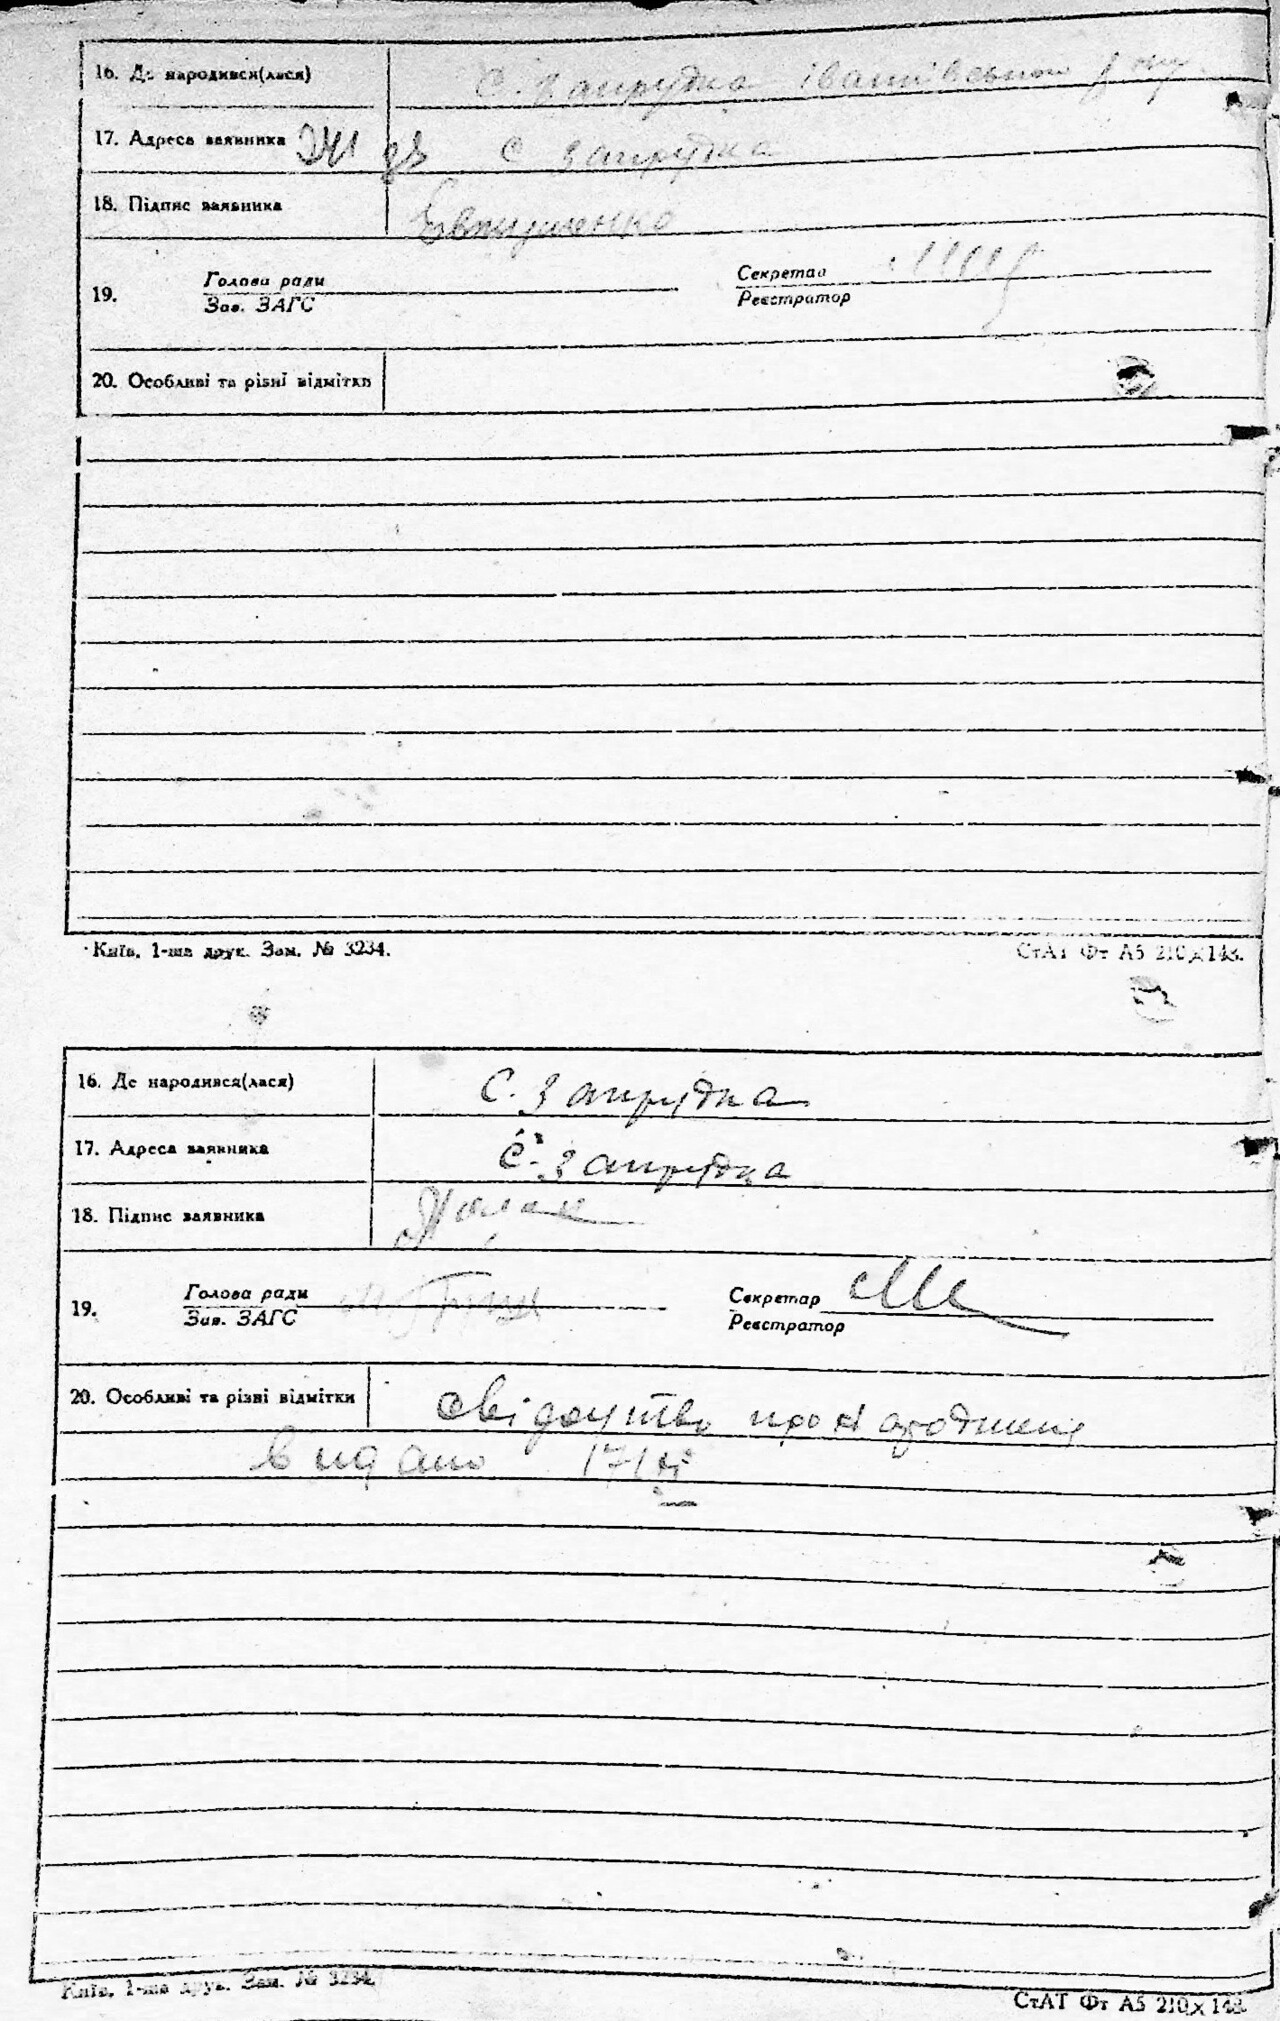 16. Де народився(лася) С. Запрудка Іванівського р-ну
17. Адреса заявника С Запрудка
18. Підпис заявника Євтушенко
19. Голова ради Секретар
Зав. ЗАГС Реєстратор
20. Особливі та різні відмітки
Київ, 1-ша друк. Зам. № 3234. СтАТ Фт А5 210×148.
16. Де народився(лася) С. Запрудка
17. Адреса заявника С. Запрудка
18. Підпис заявника
19. Голова ради Секретар
Зав. ЗАГС Реєстратор
20. Особливі та різні відмітки свідоцтво про народження
видано 17/XI
Київ, 1-ша друк. Зам. № 3234. СтАТ Фт А5 210×148.